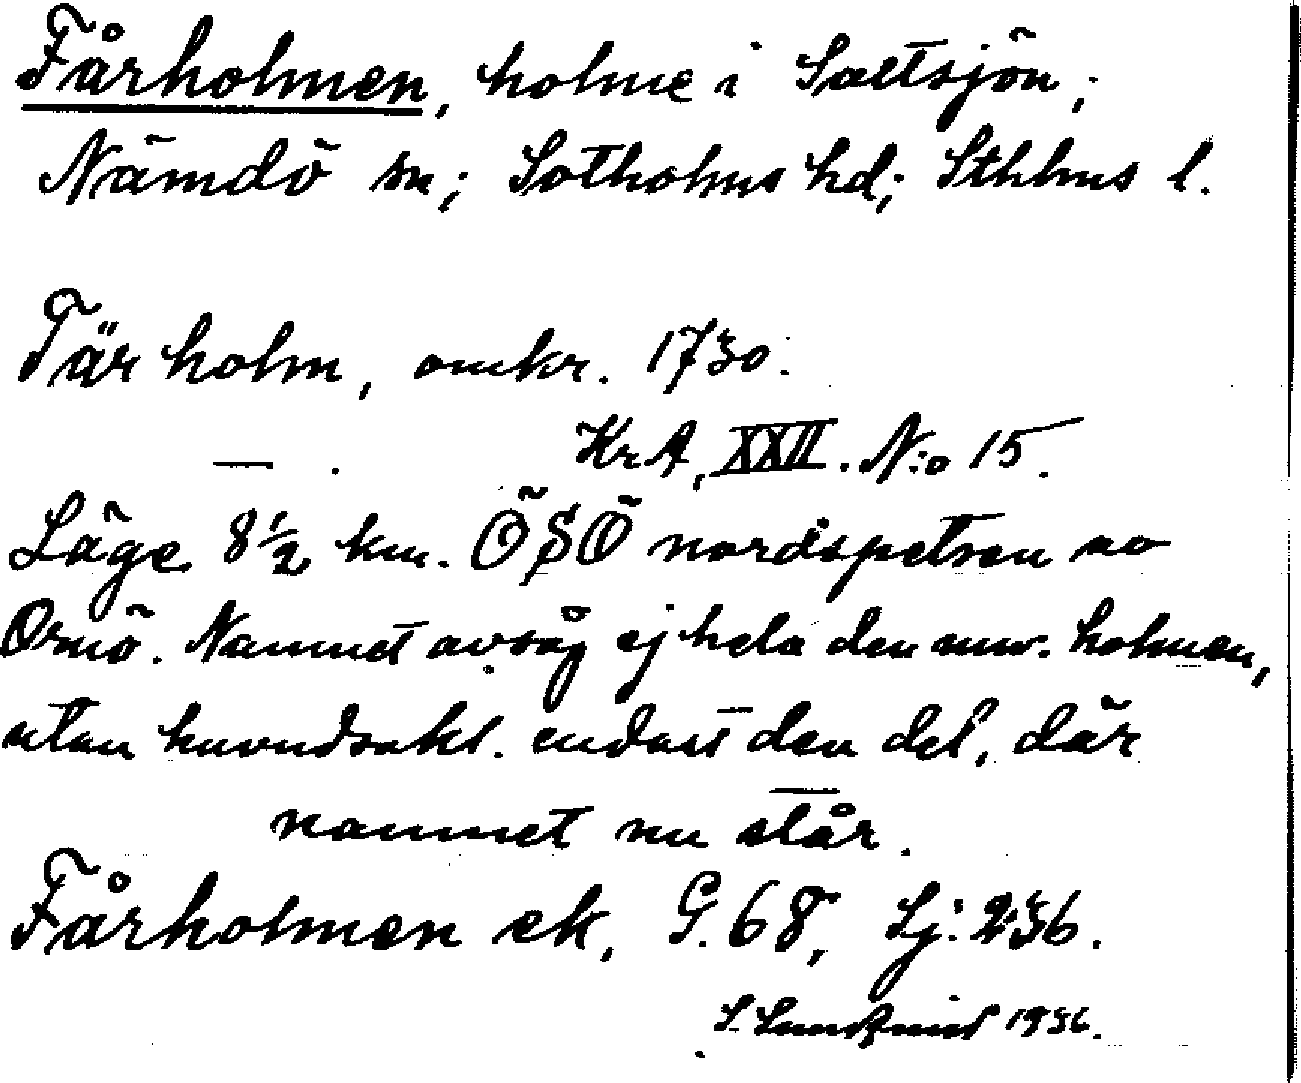 Fårholmen, holme i Saltsjön;
Nämdö sn; Sotholms hd; Sthlms l.
Tärholm, omkr. 1730.
KrA, XXII. N:o 15.
Läge 8½ km. ÖSÖ nordspetsen av
Ornö. Namnet avsåg ej hela den nuv. holmen,
utan huvudsakl. endast den del, där
namnet nu står.
Fårholmen ek, G. 68, Lj: 236.
S. Lundqvist 1936.